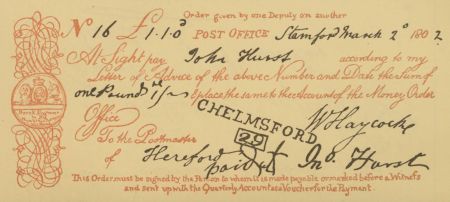 Order given by one Deputy on another
No 16 £1.1.0d POST OFFICE Stamford March 2d 1802
At Sight pay John Hurst according to my
Letter of Advice of the above Number and Date the Sum of
one Pound 1/- & place the same to the Account of the Money Order
Office
CHELMSFORD
29
Wm Haycocke
To the Postmaster
of Hereford paid it Jno. Hurst
This Order must be signed by the Person to whom it is made payable or marked before a Witness
and sent up with the Quarterly Account as a Voucher for the Payment.